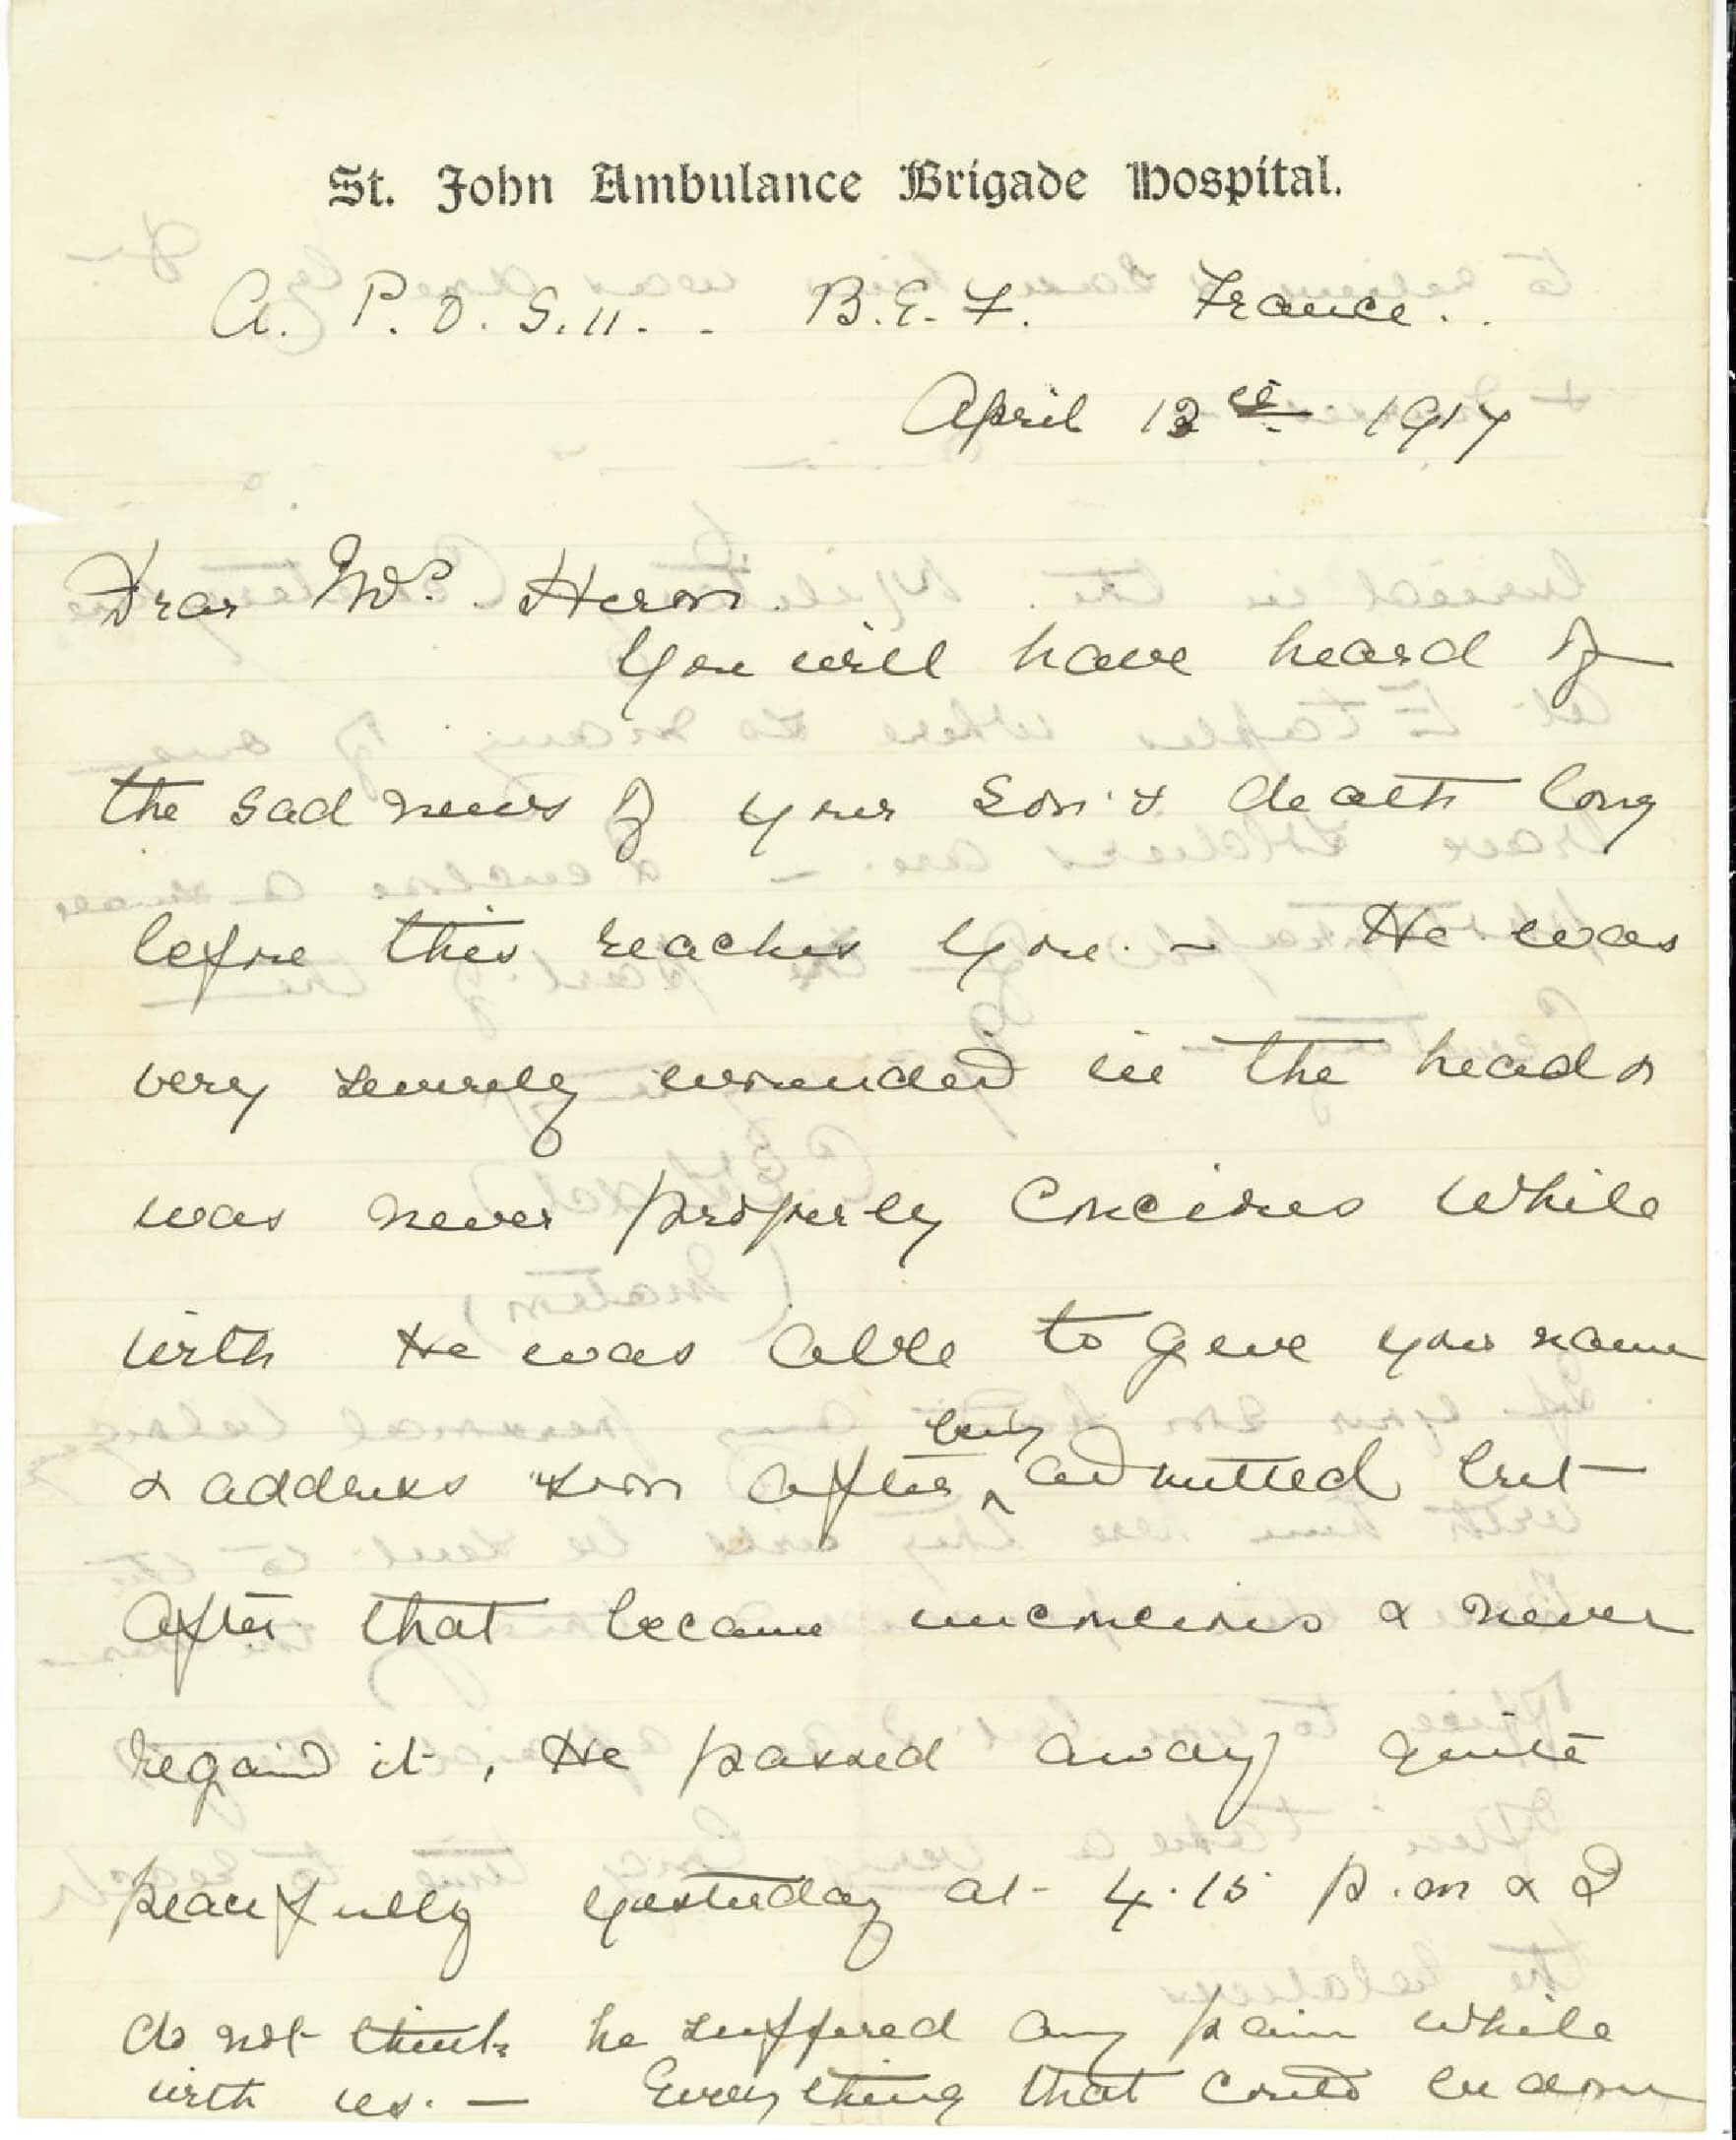 St. John Ambulance Brigade Hospital.
A. P. O. S. 11. . B. E. F. France. .
April 13th 1917
Dear Mrs. Heron.
You will have heard of
the sad news of your son's death long
before this reaches you. — He was
very severely wounded in the head &
was never properly concious while
with He was able to give your name
& address soon after ^being admitted but
after that became unconcious & never
regaind it, He passed away quite
peacefully yesterday at 4.15 p.m & I
do not think he suffered any pain while
with us. — Everything that could be done